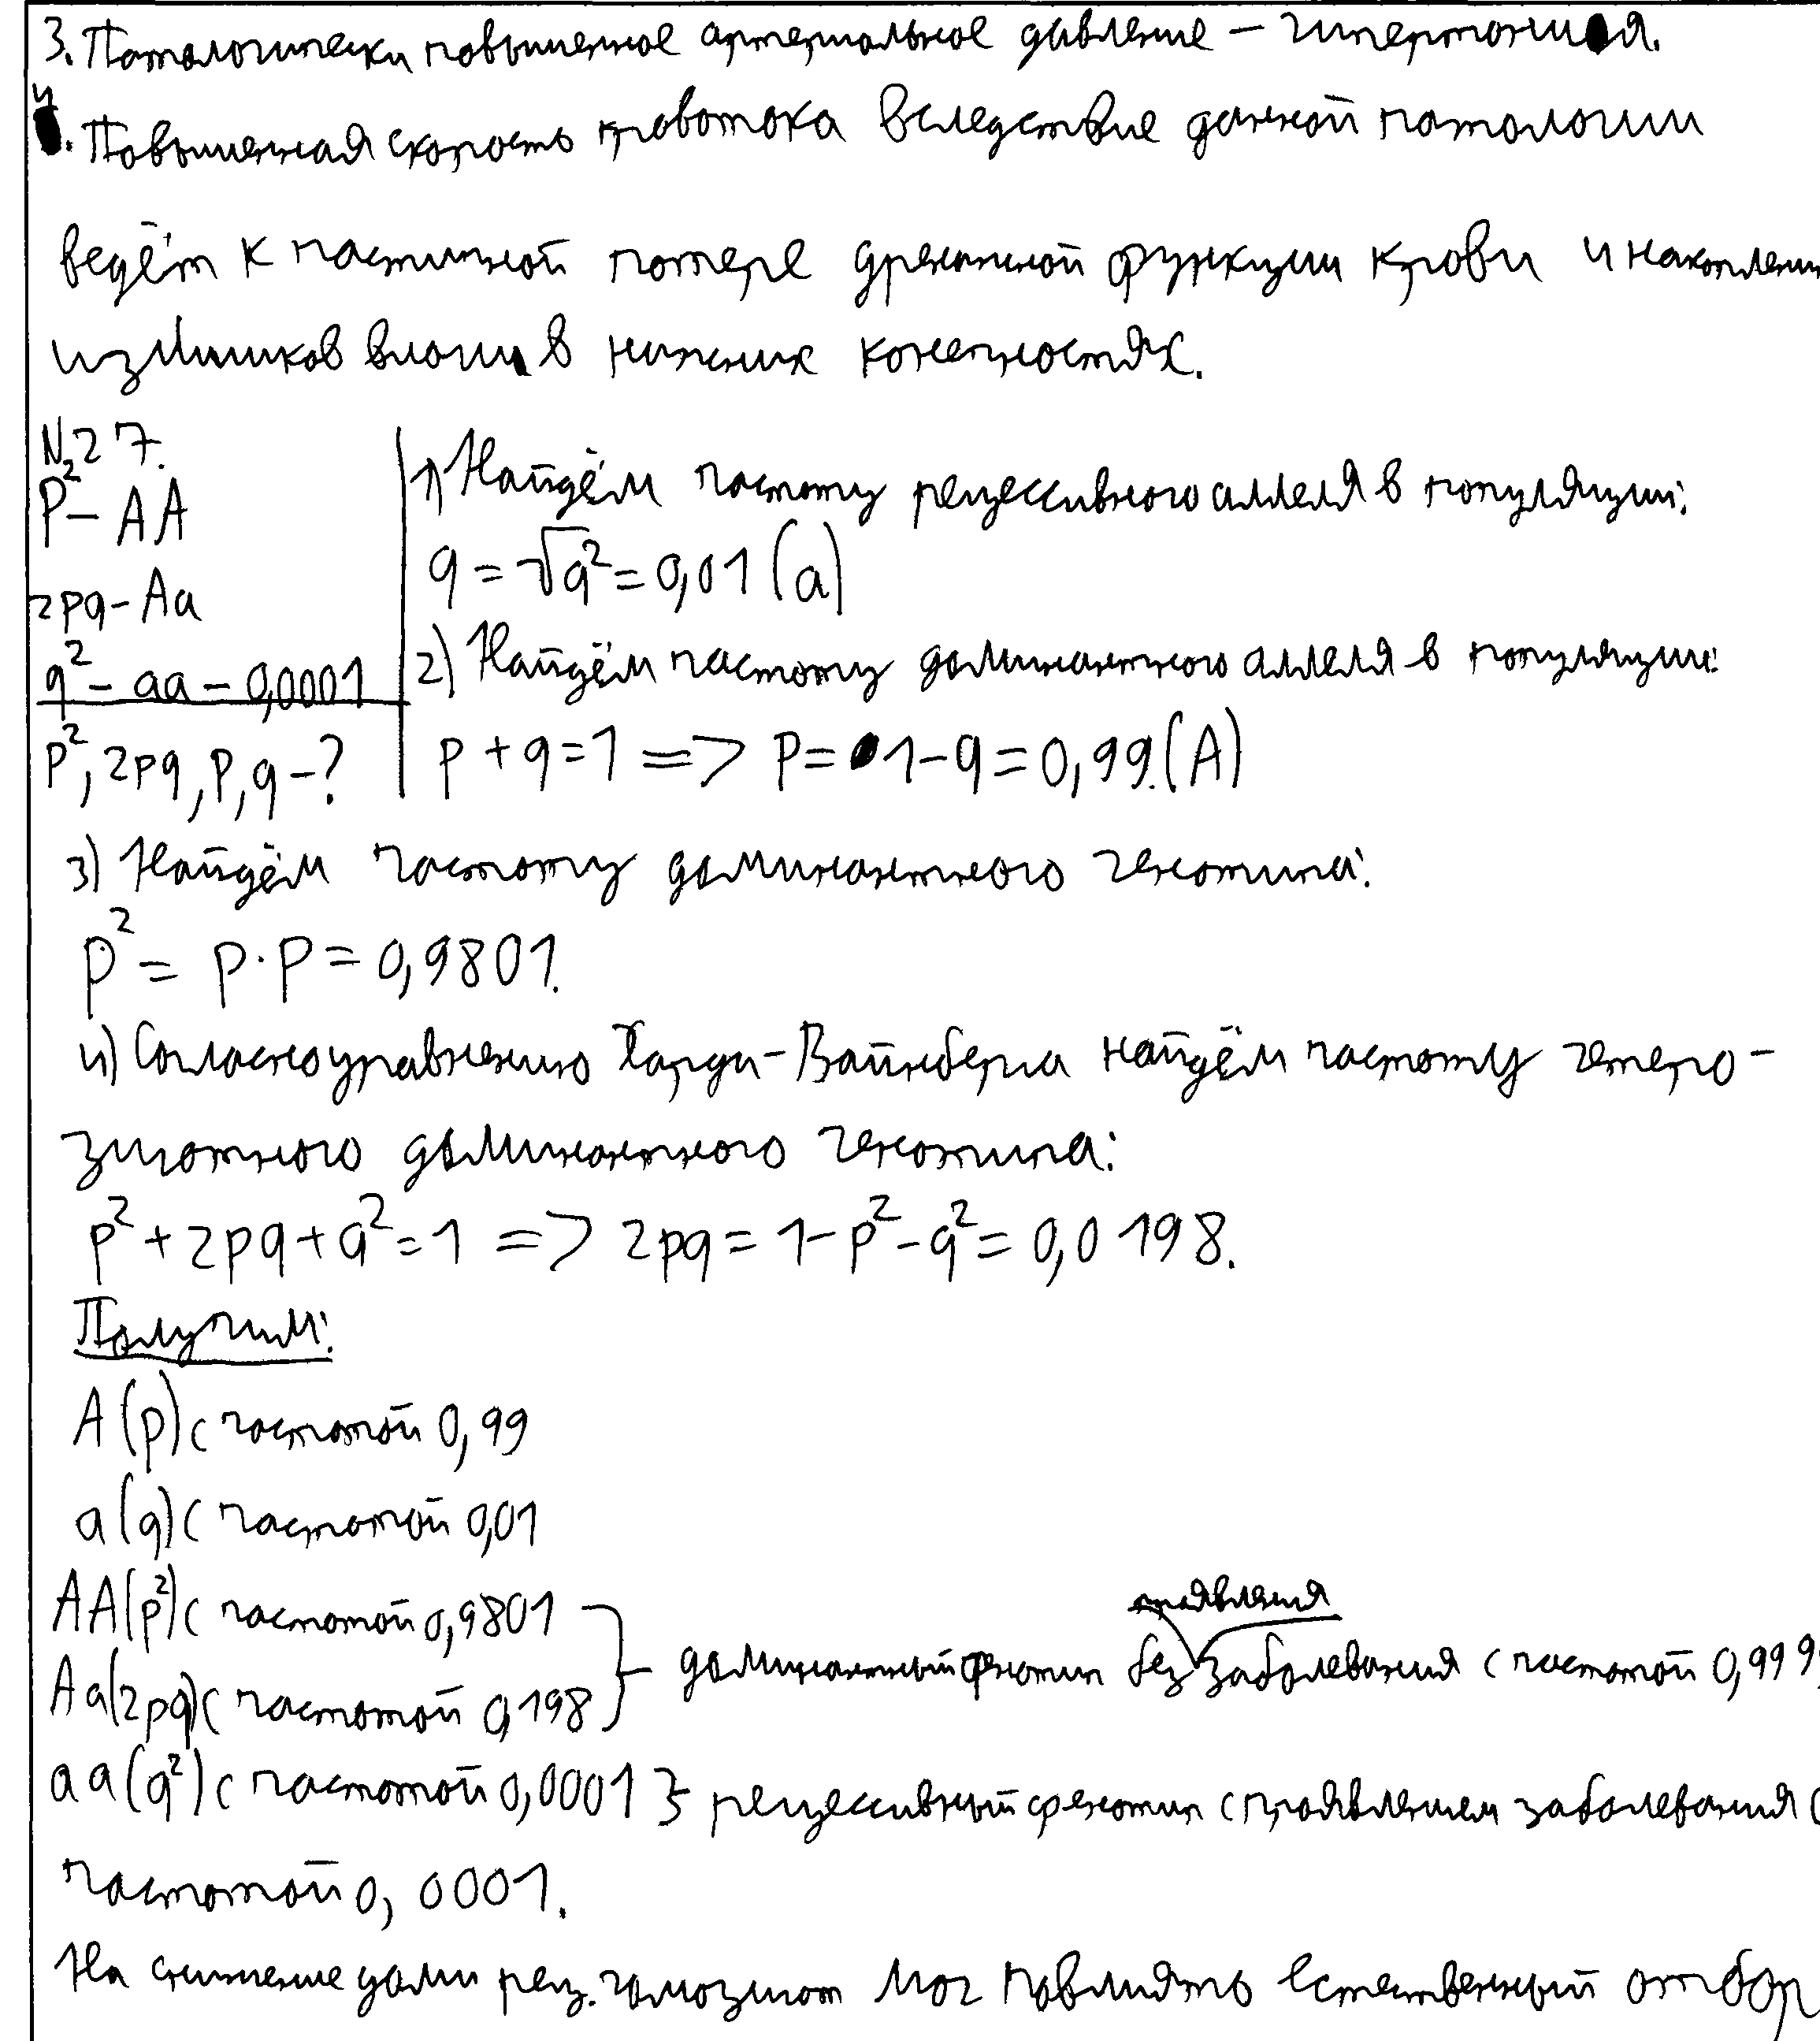 3. Патологически повышенное артериальное давление – гипертония.
4. Повышенная скорость кровотока вследствие данной патологии
ведёт к частичной потере дренажной функции крови и накоплени
излишков влаги в нижних конечностях.
№27.
P² – AA
2pq – Aa
q² – aa – 0,0001
p², 2pq, p, q – ?
1) Найдём частоту рецессивного аллеля в популяции:
q = √q² = 0,01 (a)
2) Найдём частоту доминантного аллеля в популяции:
p + q = 1 => p = 1 – q = 0,99. (A)
3) Найдём частоту доминантного генотипа:
p² = p · p = 0,9801.
4) Согласно уравнению Харди-Вайнберга найдём частоту гетеро-
зиготного доминантного генотипа:
p² + 2pq + q² = 1 => 2pq = 1 – p² – q² = 0,0198.
Получим:
A (p) с частотой 0,99
a (q) с частотой 0,01
AA (p²) с частотой 0,9801
Aa (2pq) с частотой 0,198
} – доминантный фенотип без проявления заболевания с частотой 0,999
aa (q²) с частотой 0,0001 } рецессивный фенотип с проявлением заболевания с
частотой 0,0001.
На снижение доли рец. гомозигот мог повлиять естественный отбор